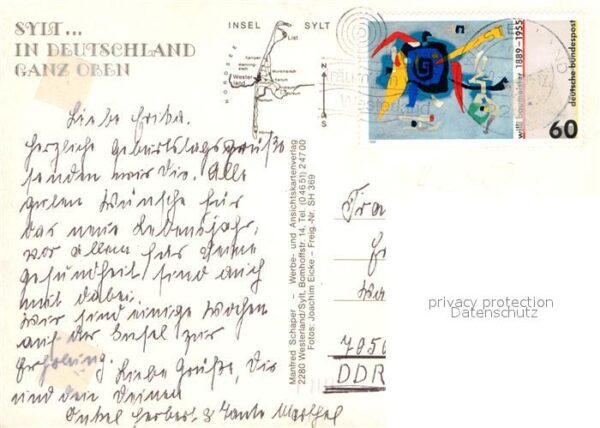 SYLT...
IN DEUTSCHLAND
GANZ OBEN
INSEL SYLT
NORDSEE
List
Kampen
Westerland
N
S
Westerland
willi baumeister 1889-1955
deutsche bundespost
60
Liebe Erika.
Herzliche Geburtstagsgrüße
senden wir Dir. Alle
guten Wünsche für
das neue Lebensjahr,
vor allem für Deine
Gesundheit sind auch
mit dabei.
Wir sind einige Wochen
auf der Insel zur
Erholung. Liebe Grüße, Dir
und den Deinen
Onkel Herbert & Tante
Manfred Schaper – Werbe- und Ansichtskartenverlag
2280 Westerland/Sylt, Bomhoffstr. 14, Tel. (0 46 51) 2 47 00
Fotos: Joachim Eicke – Freig.-Nr. SH 369
705
DDR
privacy protection
Datenschutz